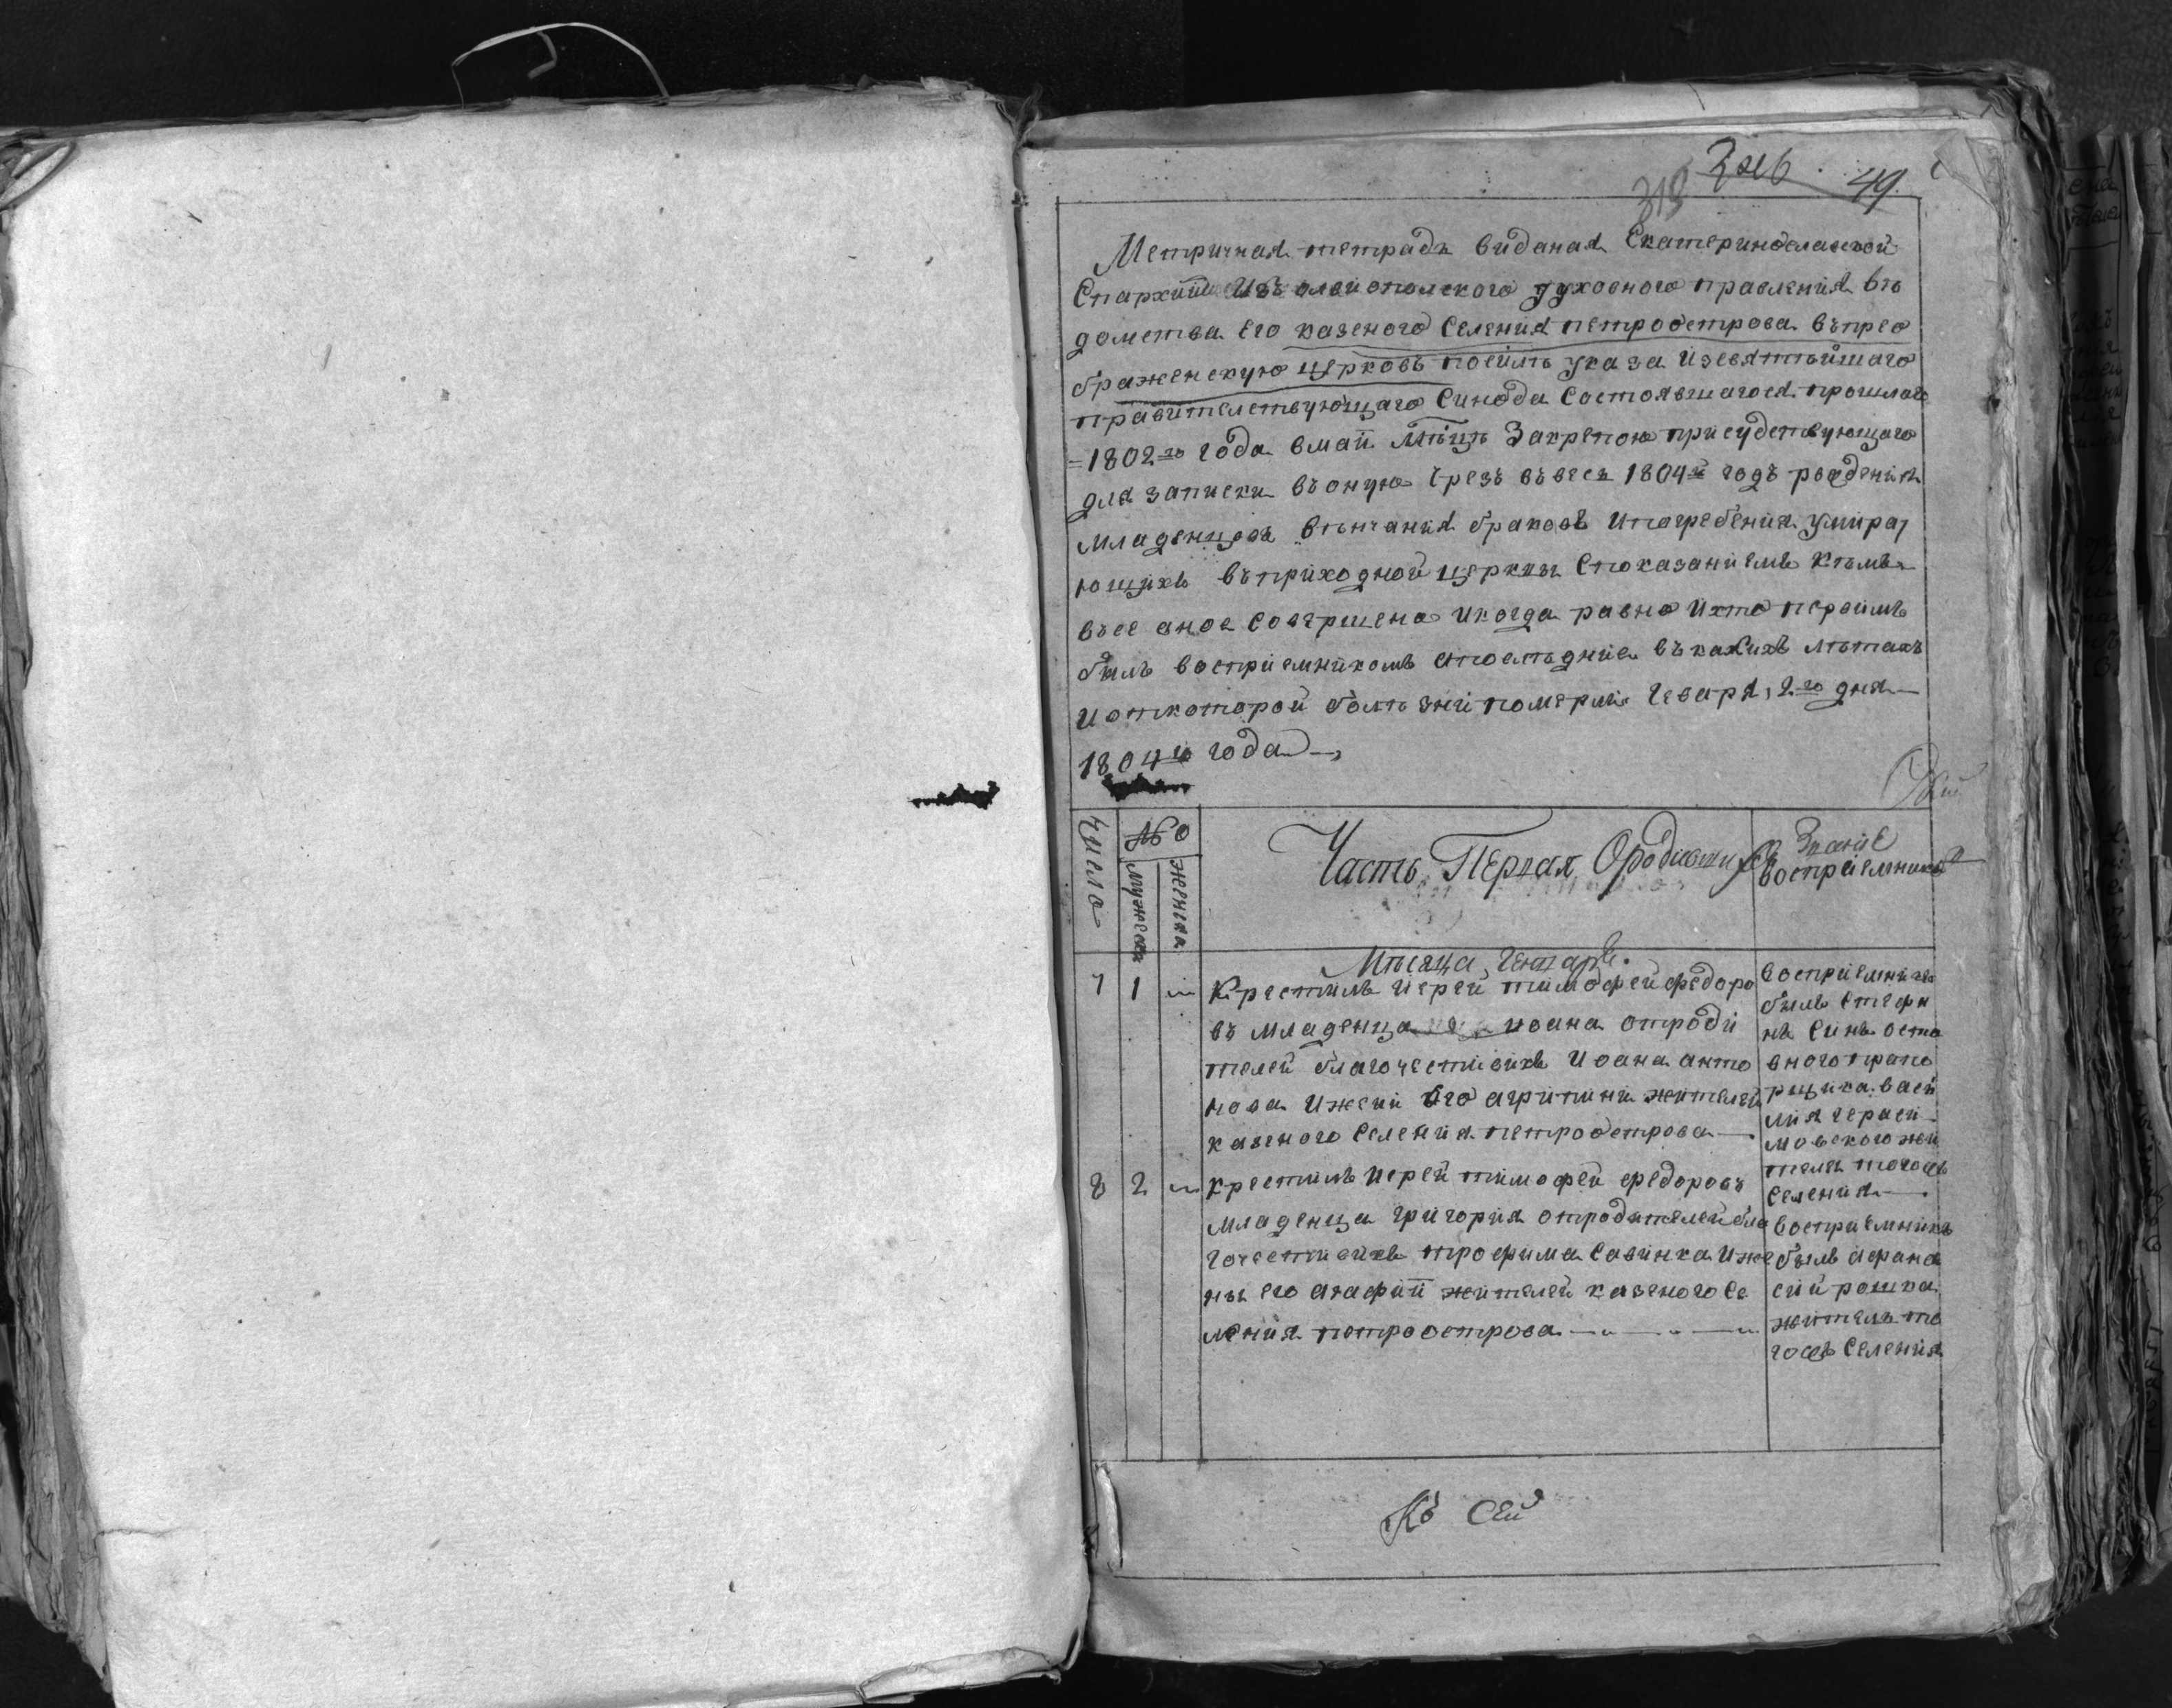 319
49
Метричная тетрадь виданая Екатеринославской
Епархии Изъ олвиополского духовного правления въ
домства его казеного селения петроострова въ прео
браженскую церковь посилъ указа изсвятѣйшаго
правителствующаго Синода Состоявшагося прошлаго
=1802-го года вмаи Мѣцъ Закрепою присудствующаго
для записки въ оную Чрезъ въвесь 1804й годъ рождения
младенцовъ вѣнчания браковъ ипогребения умира
ющихъ въ приходной церквы Споказаниемъ кѣмъ
въсе оное совершено икогда равно ихто первимъ
билъ восприемникомъ апослѣдние въ какихъ лѣтахъ
иоткоторой болѣзни померли Генваря, 2-го дня
1804го года
Число
№0
мужеска
женска
Часть Первая Ородившихся
Звание восприемников
Мѣсяца, Генваря.
7 1 Крестилъ иерей тимофей федоро
въ младенца иоана отроди
телей благочестивихъ Иоана анто
нова ижени его агрипини жителей
казеного селения петроострова
восприемникъ
билъ стефа
нъ синъ оста
вного прапо
рщика васи
лия гераси
мовского жи
тель тогожъ
селения
8 2 крестилъ иерей тимофей федоровъ
младенца григория отродителей бла
гочестивихъ трофима савинка иже
нъ его агафии жителей казеного се
ления петроострова
восприемникъ
билъ афана
сий рошка
житель то
гожъ селения
Къ сей